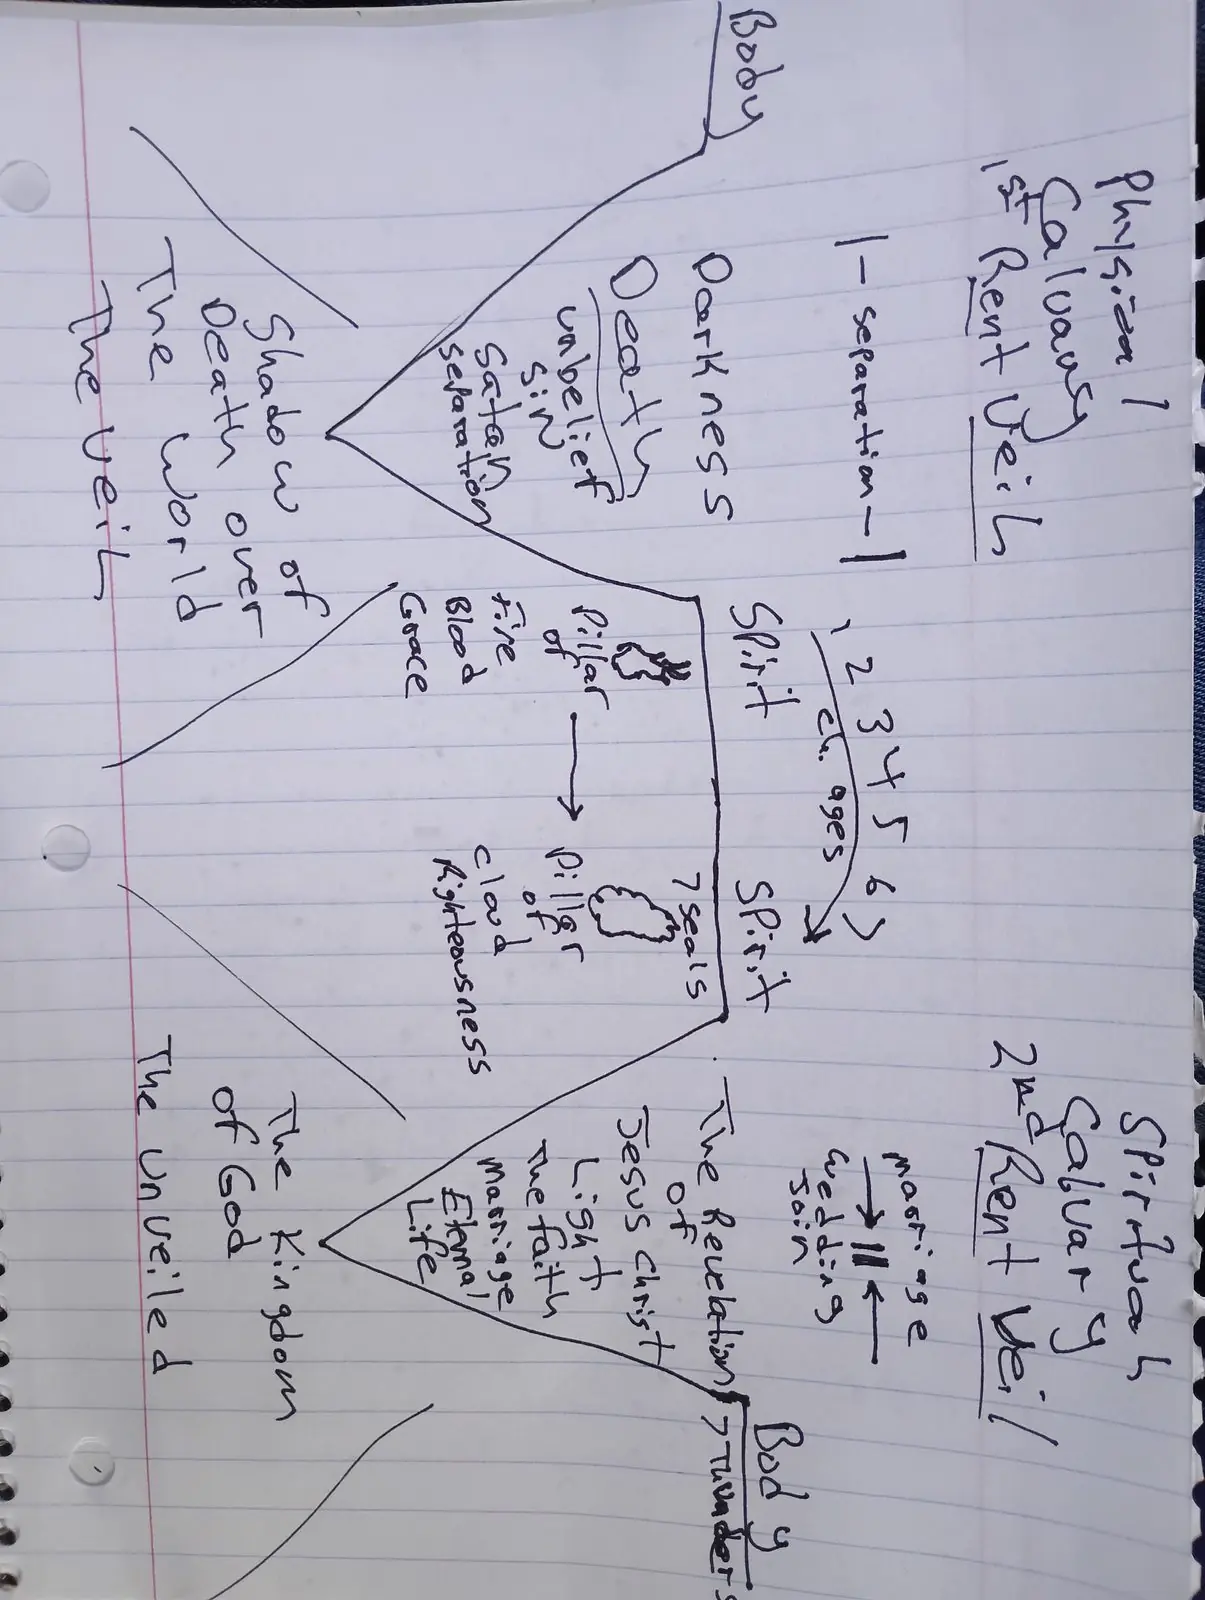 Physical
Calvary
1st Rent Veil
|- separation -|
Body
Darkness
Death
unbelief
Sin
Satan
separation
Shadow of
Death over
The World
The Veil
1 2 3 4 5 6 7
ch. ages
Spirit
Spirit
7 seals
Pillar
of
Fire
Blood
Grace
Pillar
of
Cloud
Righteousness
Spiritual
Calvary
2nd Rent Veil
marriage
wedding
Join
Body
7 Thunders
The Revelation
of
Jesus Christ
Light
The faith
marriage
Eternal
Life
The Kingdom
of God
The Unveiled